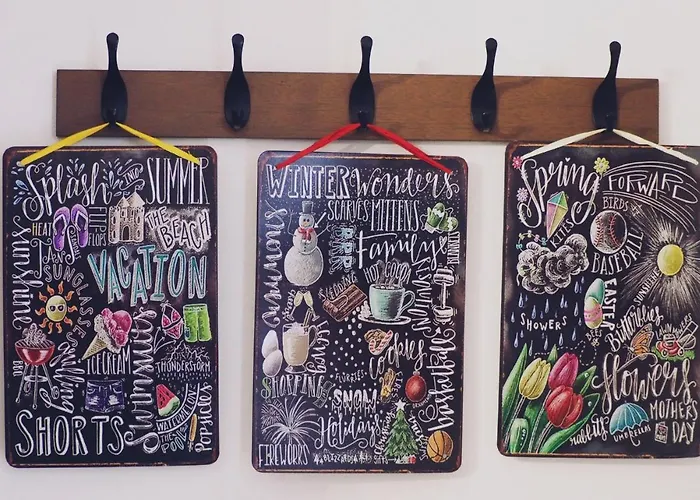 Splash
AND
SUMMER
HEAT
FLIP
FLOPS
THE
BEACH
sunshine
SUNGLASSES
VACATION
BBQ
ICE CREAM
Swimsuits
THUNDERSTORM
WATERMELON
SHORTS
Popsicles
WINTER Wonders
SCARVES
MITTENS
Family
HOT COCOA
Chocolate
VACATIONS
Cookies
SHOPPING
FLURRIES
basketball
SNOW
Holidays
FIREWORKS
BLIZZARDS
Spring
FORWARD
KITES
BIRDS
BASEBALL
SUNSHINE
EASTER
SHOWERS
Butterflies
flowers
rabbits
UMBRELLAS
MOTHERS
DAY